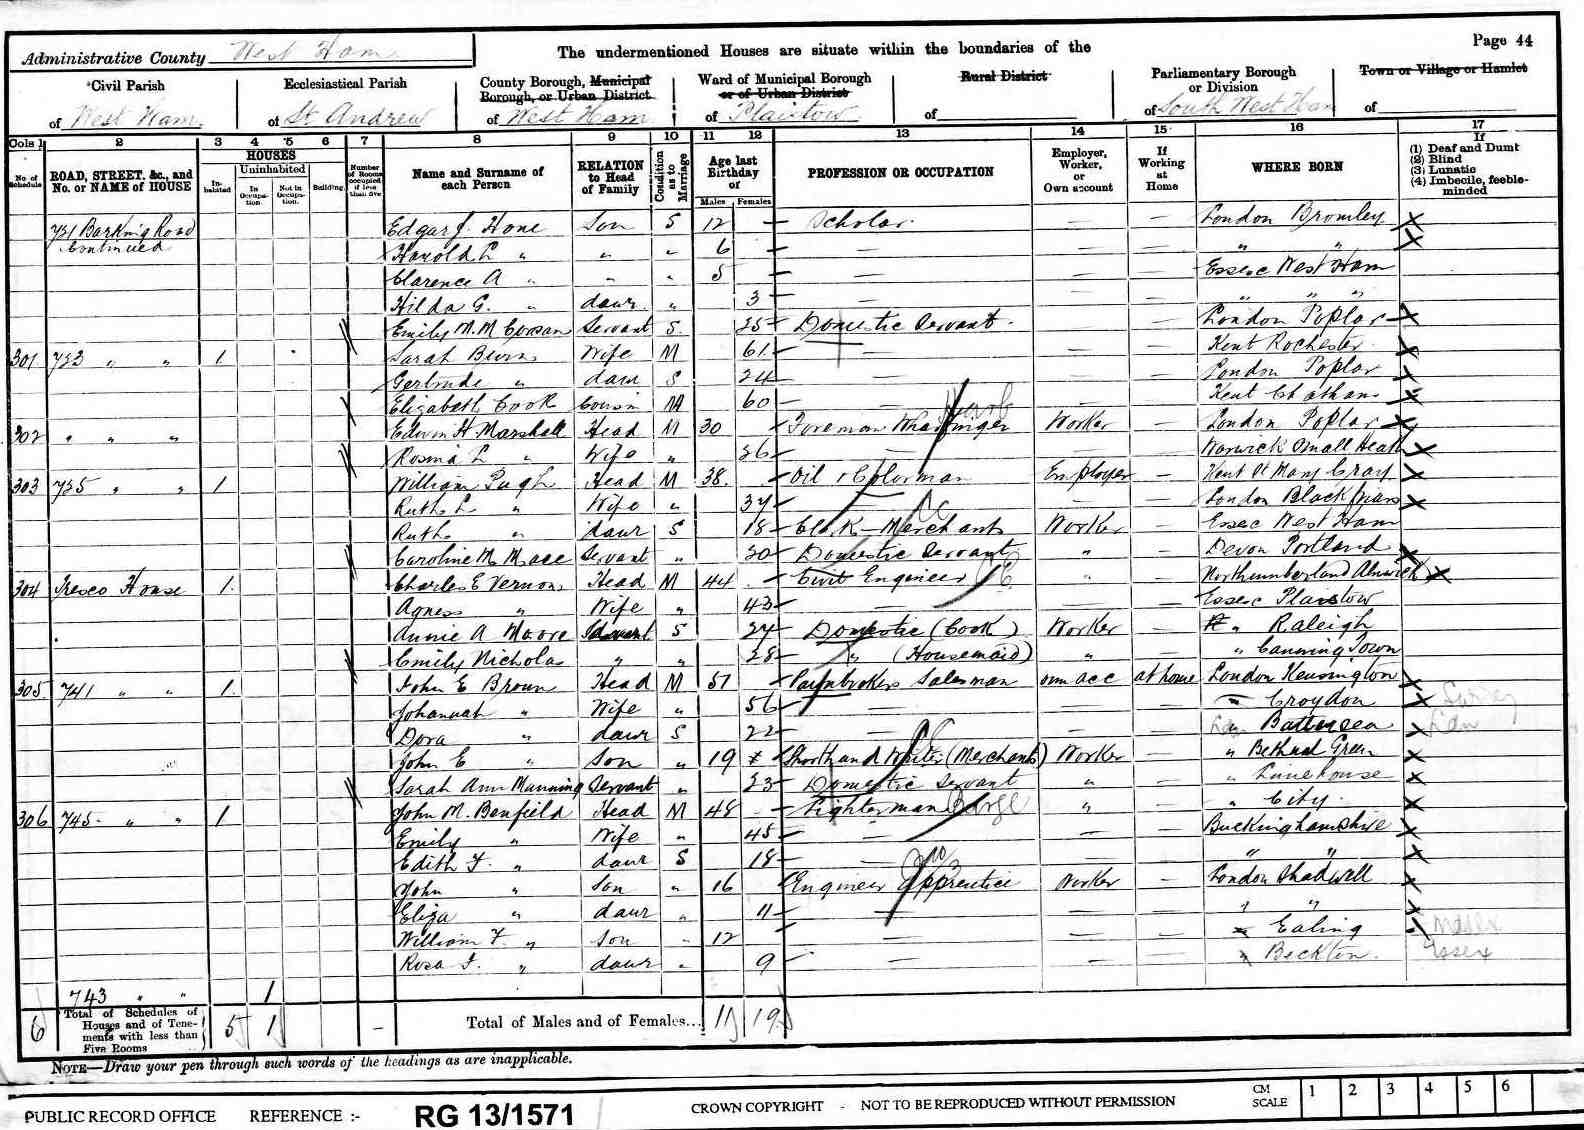 Administrative County West Ham
The undermentioned Houses are situate within the boundaries of the
Page 44
Civil Parish of West Ham
Ecclesiastical Parish of St. Andrew
County Borough, Municipal Borough, or Urban District of West Ham
Ward of Municipal Borough or of Urban District of Plaistow
Rural District of
Parliamentary Borough or Division of South West Ham
Town or Village or Hamlet of
Cols 1 2 3 4 5 6 7 8 9 10 11 12 13 14 15 16 17
No. of Schedule
ROAD, STREET, &c., and No. or NAME of HOUSE
HOUSES
Inhabited
Uninhabited
In Occupation.
Not in Occupation.
Building.
Number of Rooms occupied if less than five
Name and Surname of each Person
RELATION to Head of Family
Condition as to Marriage
Age last Birthday of
Males Females
PROFESSION OR OCCUPATION
Employer, Worker, or Own account
If Working at Home
WHERE BORN
If
(1) Deaf and Dumb
(2) Blind
(3) Lunatic
(4) Imbecile, feeble-minded
731 Barking Road Edgar J. Hone Son S 12 Scholar London Bromley
Continued Harold L " " " 6 " "
Clarence A " " " 5 Essex West Ham
Hilda G. " daur. " 3 " " "
Emily M. M Servant S. 25 Domestic Servant. London Poplar
301 733 " " 1. Sarah Wife M 61 Kent Rochester
Gertrude " daur S 24 London Poplar
Elizabeth Cook Cousin M 60 Kent Chatham
302 " " " Edwin H Marshall Head M 30 Foreman Wharfinger Worker London Poplar
L " Wife " 26 Warwick Small Heath
303 735 " " 1 William Pugh Head M 38. Oil & Colorman Employer Kent St Mary Cray
Ruth L " Wife " 37 London Blackfriars
Ruth " daur S 18 Clerk Merchants Worker Essex West Ham
Caroline M Mace Servant " 30 Domestic Servant " Devon Portland
304 Tresco House 1. Charles E Vernon Head M 44 Civil Engineer " Northumberland Alnwick
Agness " Wife " 43 Essex Plaistow
Annie A Moore Servant S 27 Domestic (Cook) Worker " Raleigh
Emily Nicholas " " 28 " (Housemaid) " " Canning Town
305 741 " " 1. John E Brown Head M 51 Pawnbrokers Salesman own acc at home London Kensington
Johannah " Wife " 56 Croydon Surrey
Dora " daur S 22 " Battersea Lon
John E " Son " 19 Shorthand Writer (Merchants) Worker " Bethnal Green
Sarah Ann Manning Servant " 23 Domestic Servant " " Limehouse
306 745 " " 1 John M. Benfield Head M 48 Lighterman Barge " " City
Emily " Wife " 45 Buckinghamshire
Edith F. " daur S 18 " "
John " Son " 16 Engineer Apprentice Worker London Shadwell
Eliza " daur " 11 " "
William F. " son " 12 " Ealing
Rosa F. " daur " 9 " Beckton. Essex
743 " " 1
6 Total of Schedules of Houses and of Tenements with less than Five Rooms 5 1 - Total of Males and of Females... 11 19
NOTE—Draw your pen through such words of the headings as are inapplicable.
PUBLIC RECORD OFFICE REFERENCE :- RG 13/1571
CROWN COPYRIGHT - NOT TO BE REPRODUCED WITHOUT PERMISSION
CM SCALE 1 2 3 4 5 6